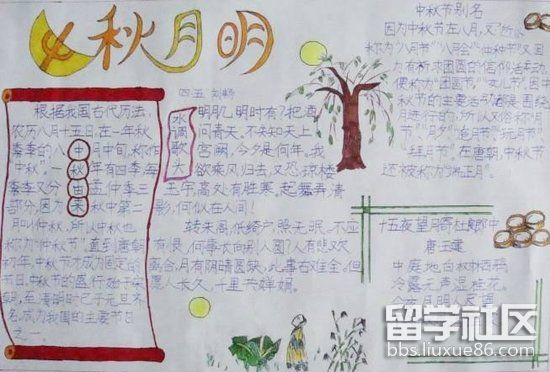 中秋月明
四五 刘畅
根据我国古代历法,
农历八月十五日,在一年秋
季的八月中旬,称作
“中秋”。一年有四季,每
季又分孟、仲、季三
部分,因为秋中第二
月叫仲秋,所以中秋也
称为“仲秋节”,直到唐朝
初年,中秋节才成为固定的
节日。中秋节的盛行始于宋
朝,至明清时已于元旦齐
名,成为我国的主要节日
之一。
中秋由来
水调歌头
明月几时有?把酒
问青天。不知天上
宫阙,今夕是何年。我
欲乘风归去,又恐琼楼
玉宇,高处不胜寒。起舞弄清
影,何似在人间!
转朱阁,低绮户,照无眠。不应
有恨,何事长向别人圆?人有悲欢
离合,月有阴晴圆缺,此事古难全。但
愿人长久,千里共婵娟。
中秋节别名
因为中秋节在八月,又
称为“八月节”“八月会”“仲秋节”又因
为有祈求团圆的信仰活动,
便称为“团圆节”“女儿节”。因中
秋节的主要活动都是围绕
月进行的,所以又俗称“月
节”“月夕”“追月节”“玩月节”
“拜月节”。在唐朝,中秋节
还被称为“端正月”。
十五夜望月寄杜郎中
唐 王建
中庭地白树栖鸦,
冷露无声湿桂花。
今夜月明人尽望
留学社区
bbs.liuxue86.com